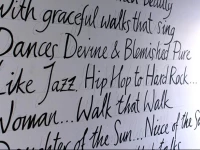 beauty
With graceful walks that sing
Dances Devine & Blemished Pure
Like Jazz, Hip Hop to Hard Rock...
Woman... Walk that Walk
Daughter of the Sun... Niece of the S